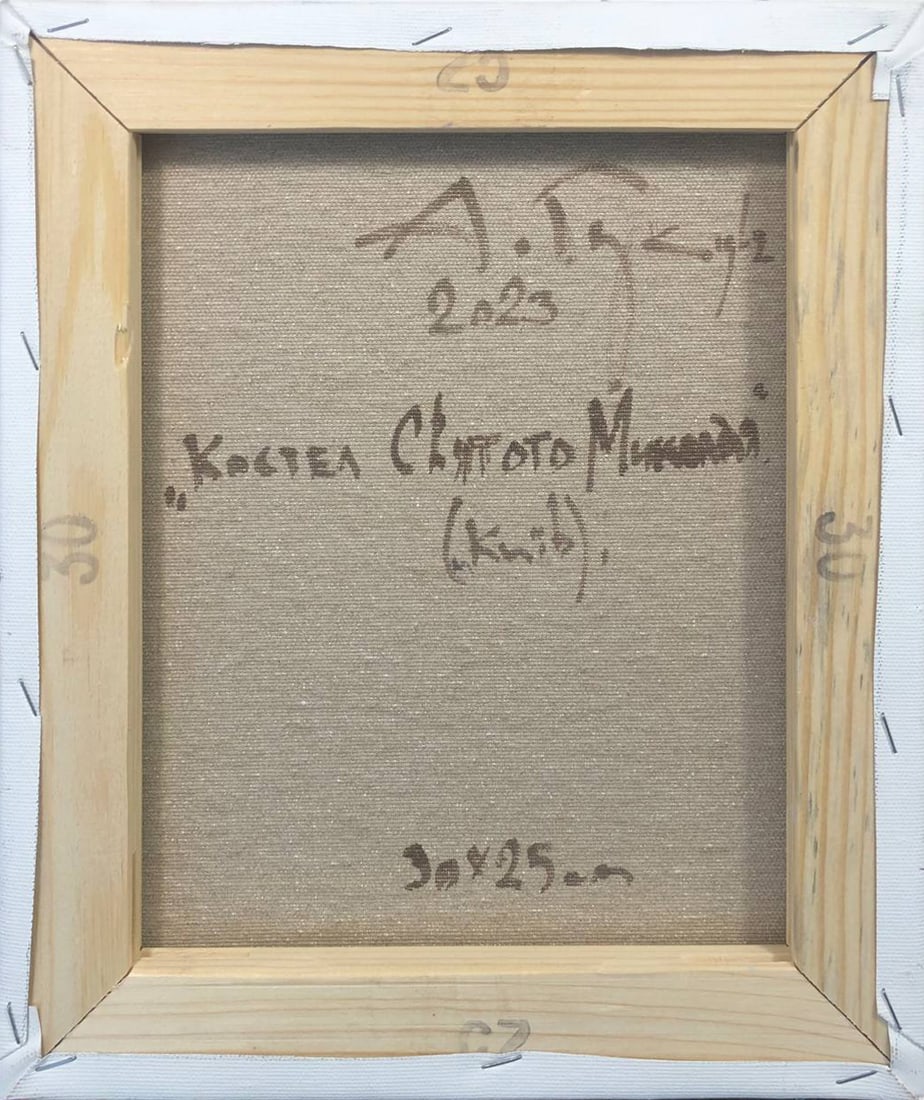 25
А.
2023
„Костел Святого Миколая“
(Київ).
30
30
30х25см
25